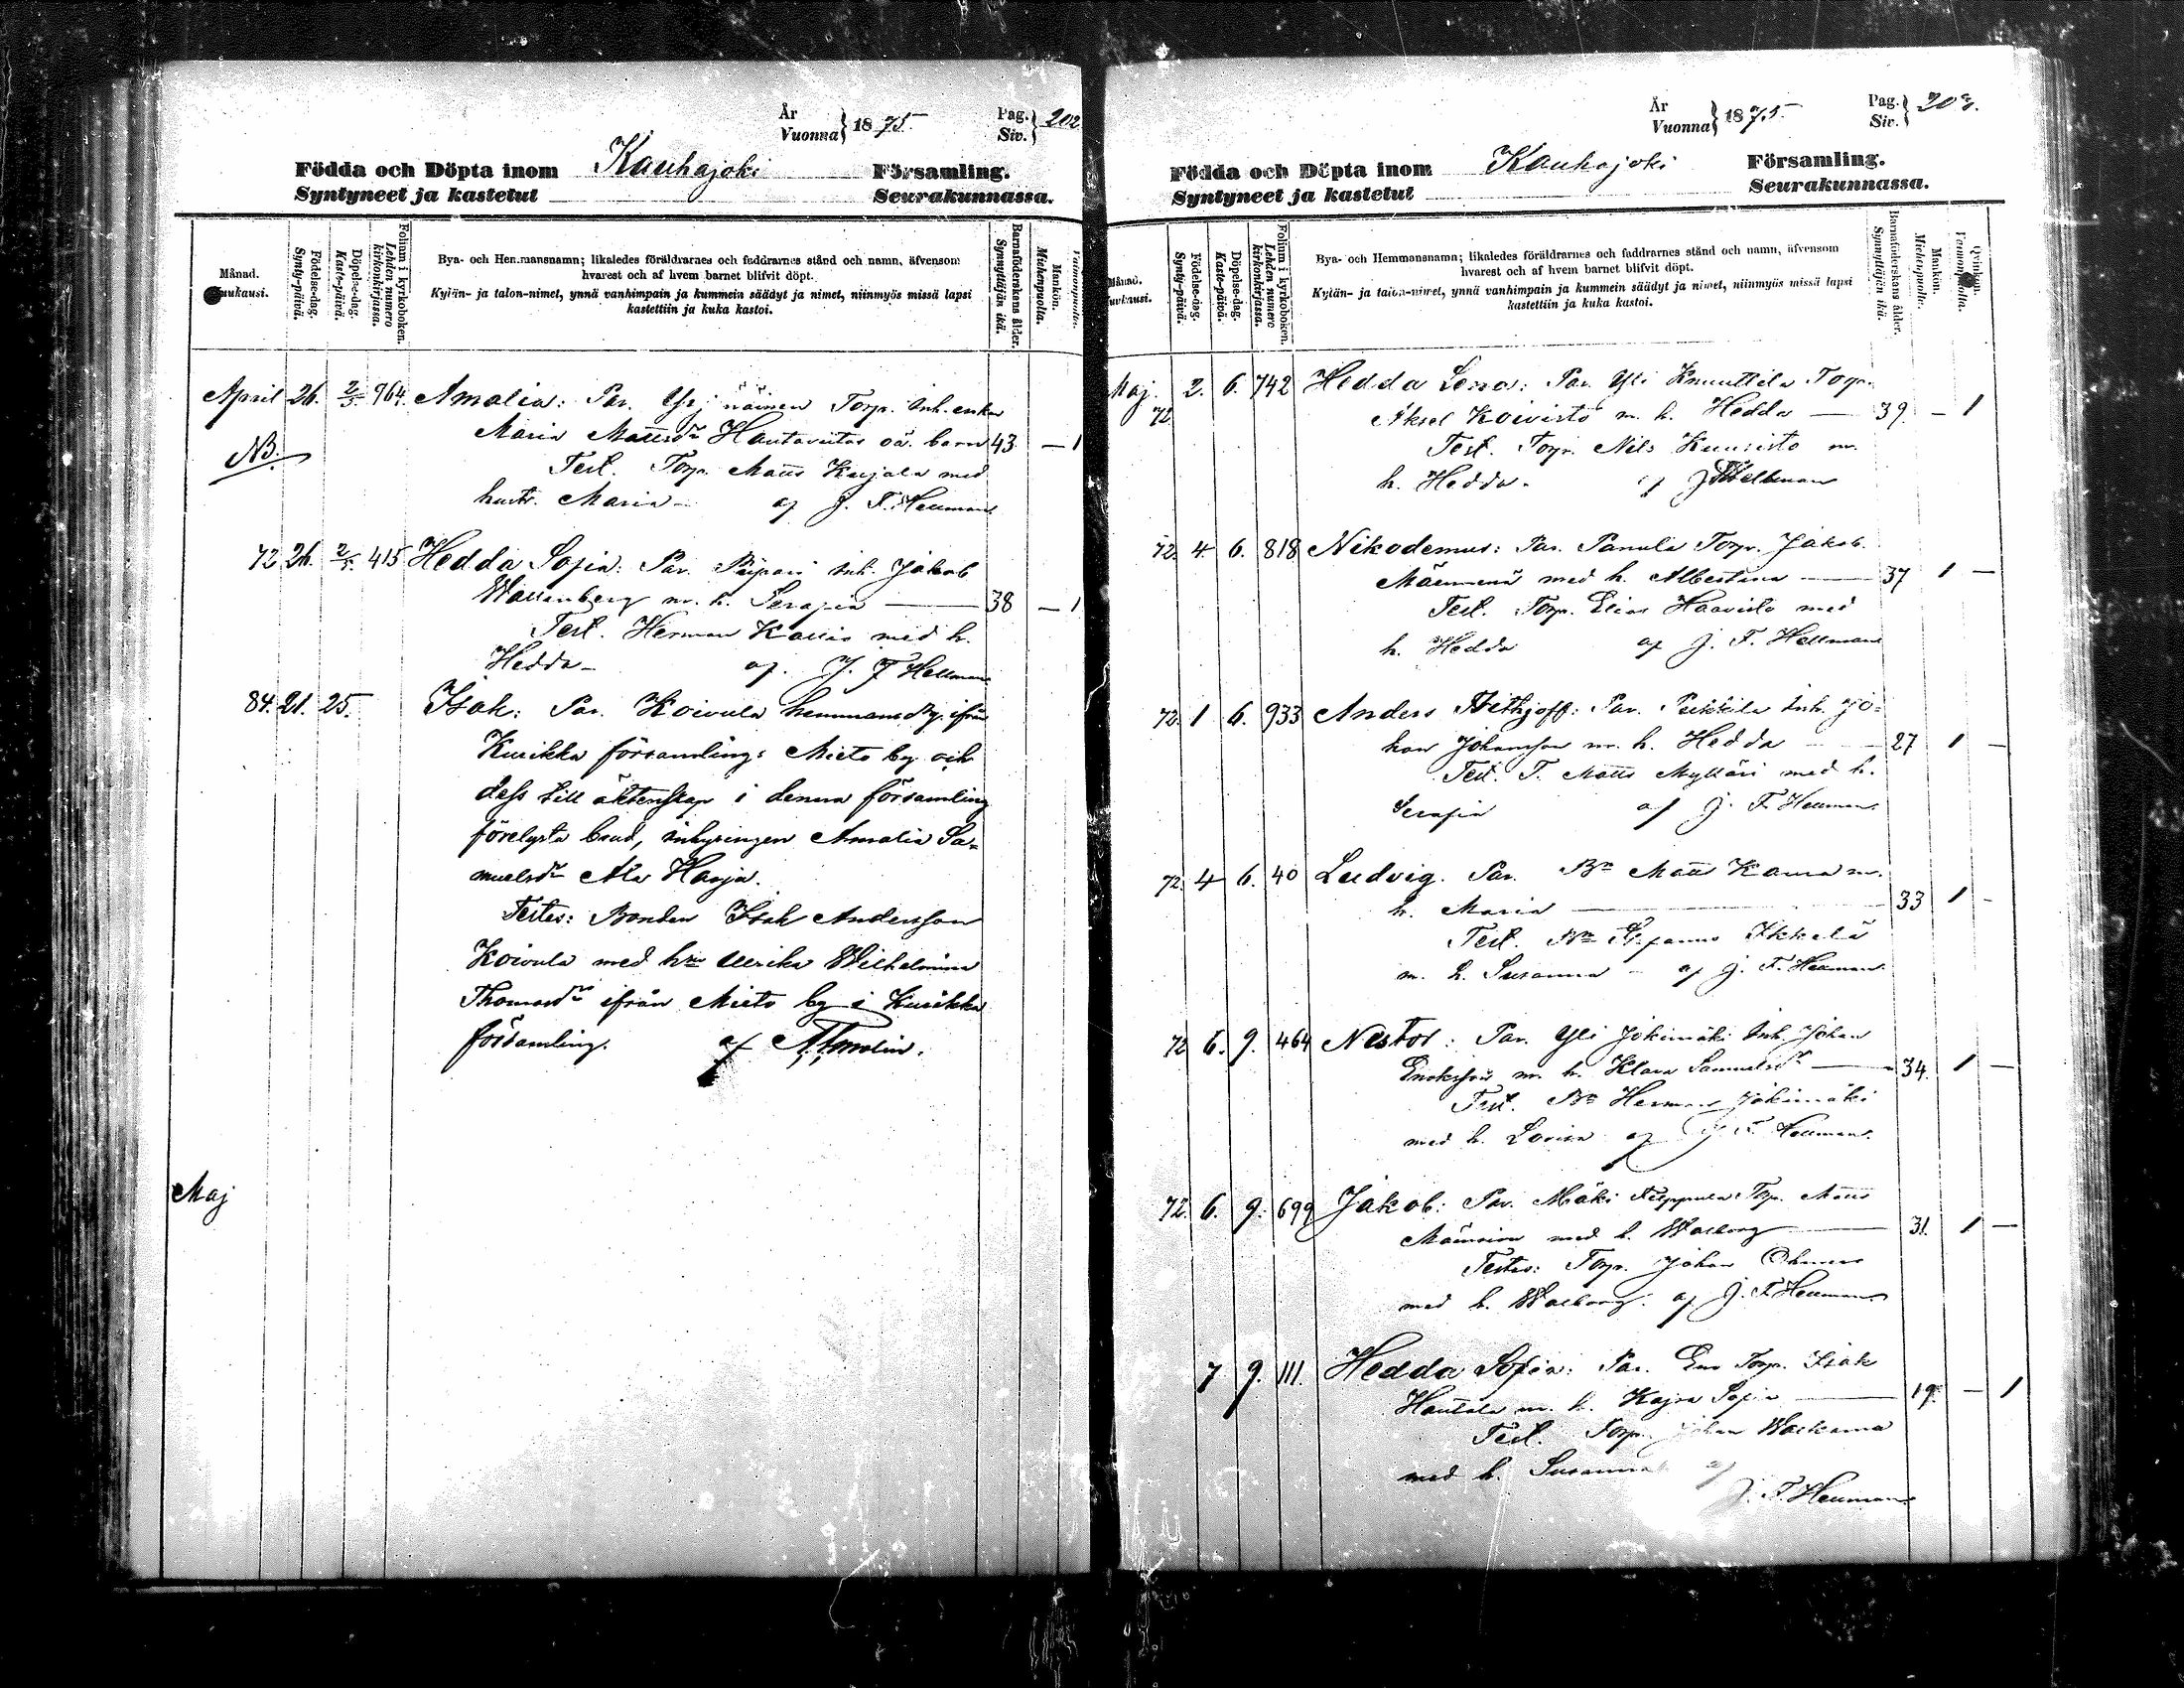 År
Vuonna } 1875. Pag. Siv. } 202
Födda och Döpta inom Kauhajoki Församling.
Syntyneet ja kastetut Seurakunnassa.
Månad.
Kuukausi.
Födelse-dag.
Synty-päivä.
Döpelse-dag.
Kaste-päivä.
Folium i kyrkoboken.
Lehden numero kirkonkirjassa.
Bya- och Hemmansnamn; likaledes föräldrarnes och faddrarnes stånd och namn, äfvensom
hvarest och af hvem barnet blifvit döpt.
Kylän- ja talon-nimet, ynnä vanhimpain ja kummein säädyt ja nimet, niinmyös missä lapsi
kastettiin ja kuka kastoi.
Barnaföderskans ålder.
Synnyttäjän ikä.
Mankön.
Miehenpuolta.
April 26. 2/5. 964 Amalia: Par. Torp. Inh. enka
NB. Maria Mattsdr oä. barn 43 — 1
Test. Torp. Matts Karjala med
hustr. Maria — af J. F. Hellman
72 26. 2/5. 415 Hedda Sofia: Par. Piipari Inh. Jakob
Wallenberg m. h. Serafia — 38 — 1
Test. Herman med h.
Hedda — af. J. F. Hellman
84. 21. 25. Isak: Par. Koivula hemmans ifrån
Kurikka församlings Mieto by och
dess till äktenskap i denna församling
förelysta brud, inhysingen Amalia Sa=
muelsdr Ala Harja.
Testes: Bonden Isak Andersson
Koivula med hru Ulrika Wilhelmina
Thomasdr ifrån Mieto by i Kurikka
församling. af
Maj
År
Vuonna } 1875. Pag. Siv. } 203.
Födda och Döpta inom Kauhajoki Församling.
Syntyneet ja kastetut Seurakunnassa.
Månad.
Kuukausi.
Födelse-dag.
Synty-päivä.
Döpelse-dag.
Kaste-päivä.
Folium i kyrkoboken.
Lehden numero kirkonkirjassa.
Bya- och Hemmansnamn; likaledes föräldrarnes och faddrarnes stånd och namn, äfvensom
hvarest och af hvem barnet blifvit döpt.
Kylän- ja talon-nimet, ynnä vanhimpain ja kummein säädyt ja nimet, niinmyös missä lapsi
kastettiin ja kuka kastoi.
Barnaföderskans ålder.
Synnyttäjän ikä.
Mankön.
Miehenpuolta.
Qvinkön.
Vaimonpuolta.
Maj. 2. 6. 742 Hedda Lena: Par. Yli Knuuttila Torp.
72 Aksel Koivisto m. h. Hedda — 39. — 1
Test. Torp. Nils Kuusisto m.
h. Hedda. af J F Hellman
72. 4 6. 818 Nikodemus: Par. Panula Torp. Jakob
med h. Albertina — 37 1 —
Test. Torp. Elias Haavisto med
h. Hedda af J. F. Hellman
72. 1 6. 933 Anders Frithjoff: Par. Inh. Jo=
han Johansson m. h. Hedda — 27 1 —
Test. T. Matts Mylläri med h.
Serafia af J. F. Hellman.
72. 4 6. 40 Ludvig. Par. Bn Matt m.
h. Maria — 33 1 -
Test. Bn Ikkelä
m. h. Susanna — af J. F. Hellman
72 6. 9. 464 Nestor: Par. Yli Jokimäki Inh. Johan
m. h. Klara Samuelsdr — 34. 1 —
Test. Bn Herman Jokimäki
med h. Lovisa af J F Hellman.
72. 6. 9. 699 Jakob: Par. Mäki Filppula Torp. Matts
med h. Walborg — 31. 1 —
Testes: Torp. Johan
med h. Walborg. af J. F. Hellman
7 9. 111. Hedda Sofia: Par. Torp. Isak
Hautala m. h. Kajsa Sofia — 19. — 1
Test. Torp. Johan
med h. Susanna af
J. F. Hellman